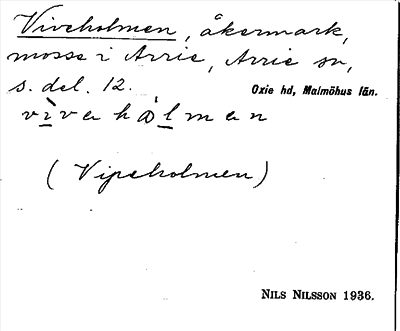 Viveholmen, åkermark,
mosse i Arrie, Arrie sn,
s. del. 12. Oxie hd, Malmöhus län.
vìvahålmen
(Vipeholmen)
NILS NILSSON 1936.